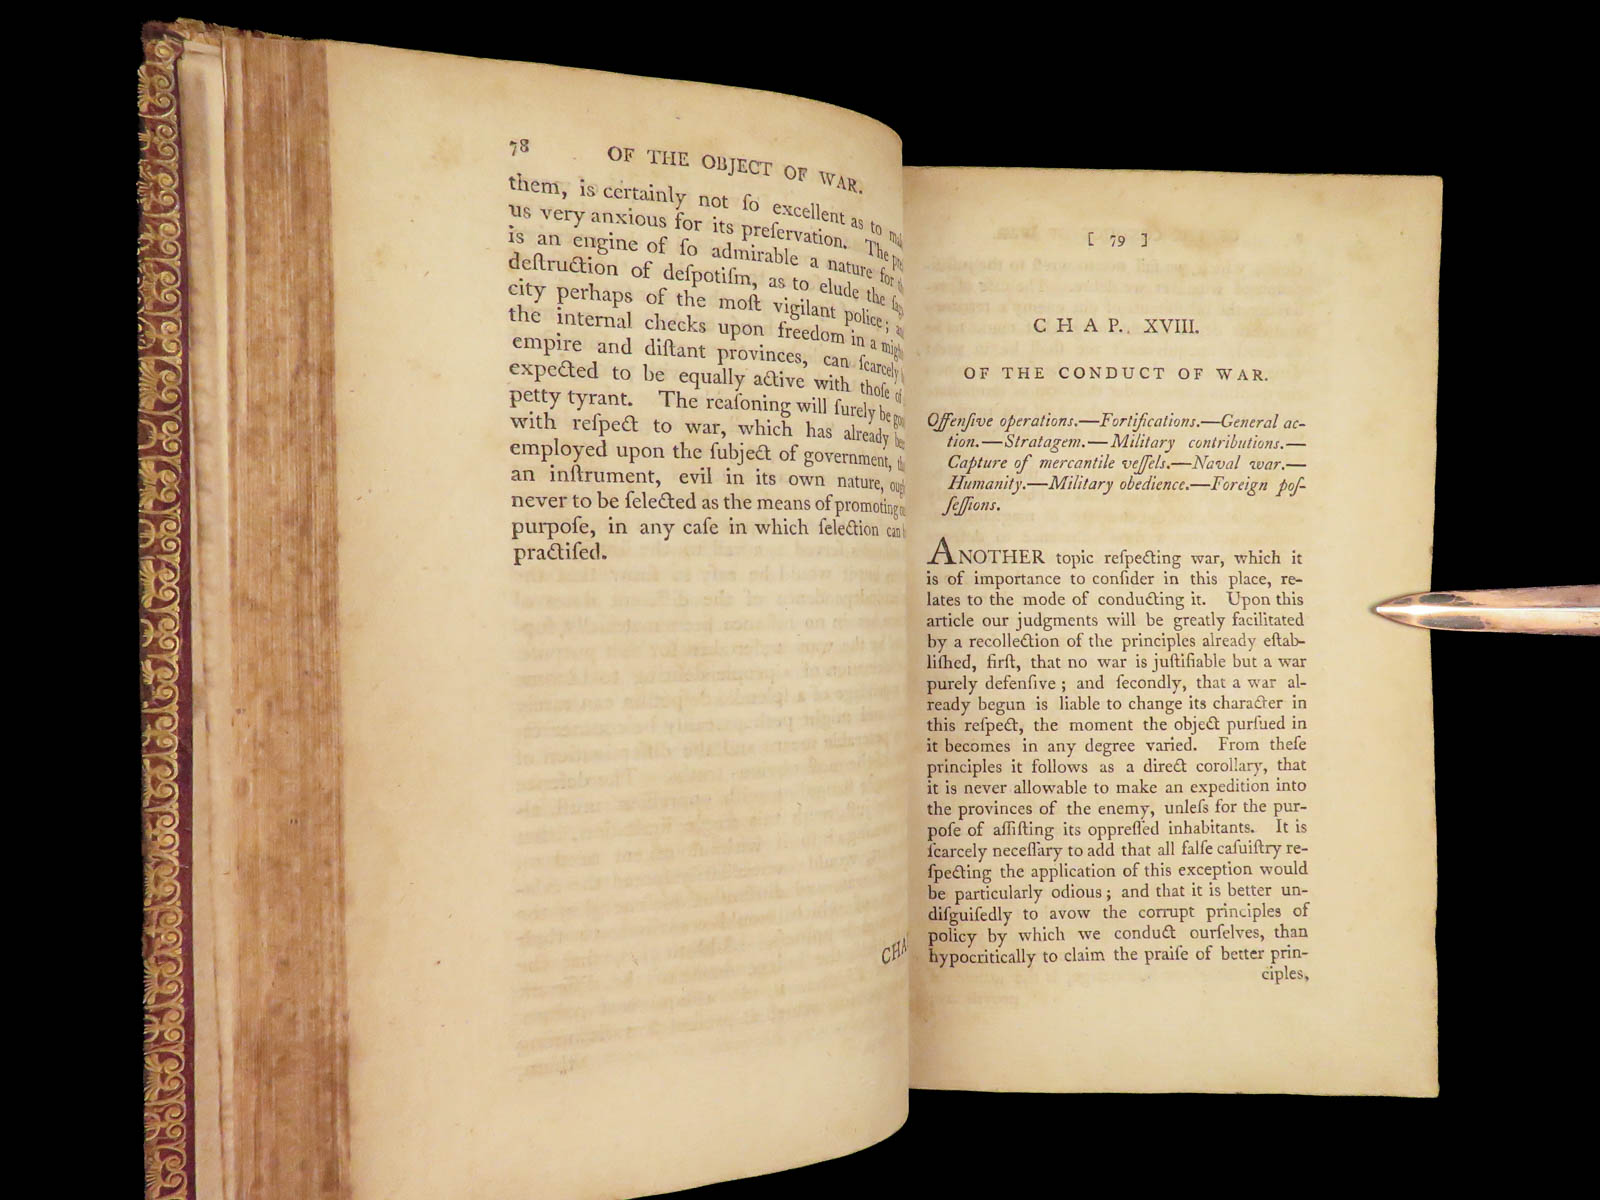 78 OF THE OBJECT OF WAR.
them, is certainly not ſo excellent as to
us very anxious for its preſervation. The
is an engine of ſo admirable a nature for
deſtruction of deſpotiſm, as to elude the
city perhaps of the moſt vigilant police;
the internal checks upon freedom in a
empire and diſtant provinces, can ſcarcely
expected to be equally active with thoſe of
petty tyrant. The reaſoning will ſurely be
with reſpect to war, which has already
employed upon the ſubject of government,
an inſtrument, evil in its own nature,
never to be ſelected as the means of promoting
purpoſe, in any caſe in which ſelection can
practiſed.
[ 79 ]
CHAP. XVIII.
OF THE CONDUCT OF WAR.
Offenſive operations.—Fortifications.—General ac-
tion.—Stratagem.—Military contributions.—
Capture of mercantile veſſels.—Naval war.—
Humanity.—Military obedience.—Foreign poſ-
ſeſſions.
ANOTHER topic reſpecting war, which it
is of importance to conſider in this place, re-
lates to the mode of conducting it. Upon this
article our judgments will be greatly facilitated
by a recollection of the principles already eſtab-
liſhed, firſt, that no war is juſtifiable but a war
purely defenſive; and ſecondly, that a war al-
ready begun is liable to change its character in
this reſpect, the moment the object purſued in
it becomes in any degree varied. From theſe
principles it follows as a direct corollary, that
it is never allowable to make an expedition into
the provinces of the enemy, unleſs for the pur-
poſe of aſſiſting its oppreſſed inhabitants. It is
ſcarcely neceſſary to add that all falſe caſuiſtry re-
ſpecting the application of this exception would
be particularly odious; and that it is better un-
diſguiſedly to avow the corrupt principles of
policy by which we conduct ourſelves, than
hypocritically to claim the praiſe of better prin-
ciples,